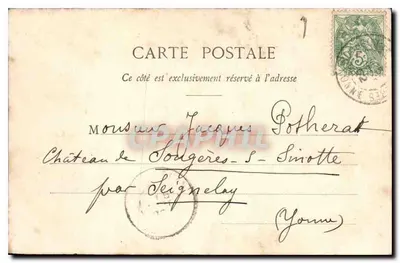 CARTE POSTALE
Ce côté est exclusivement réservé à l'adresse
Monsieur Jacques Potherat
Château de Sougères-s-Sinotte
par Seignelay
(Yonne)